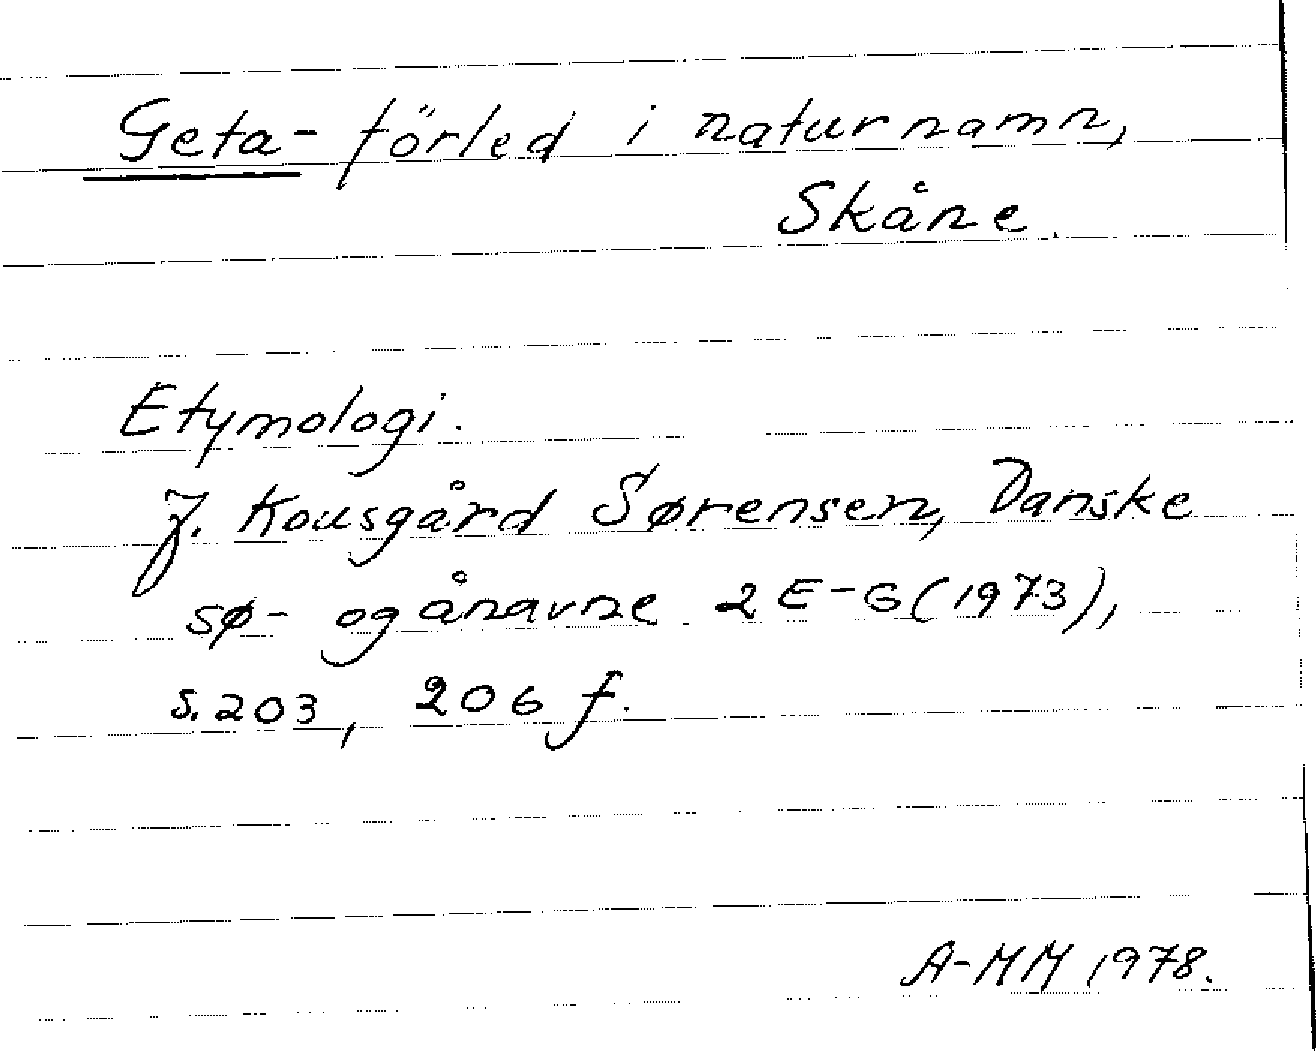 Geta- förled i naturnamn,
Skåne.
Etymologi.
J. Kousgård Sørensen, Danske
sø- og ånavne 2 E-G (1973),
s. 203, 206 f.
A-MM 1978.